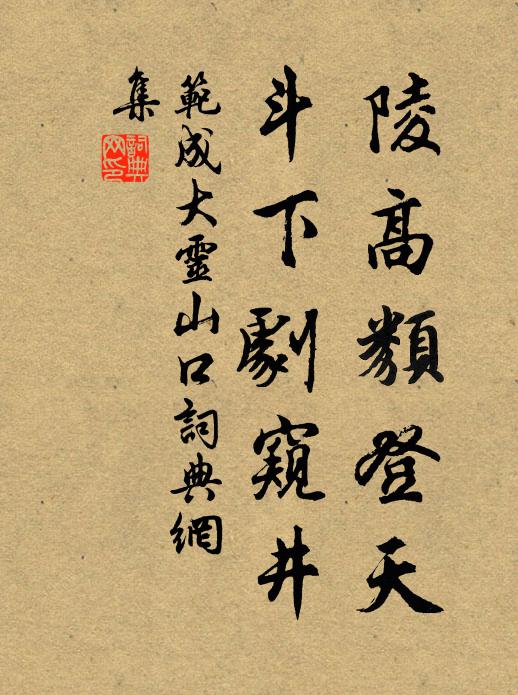 陵高類登天
斗下劇窺井
範成大靈山口詞典網
集
詞典
网印